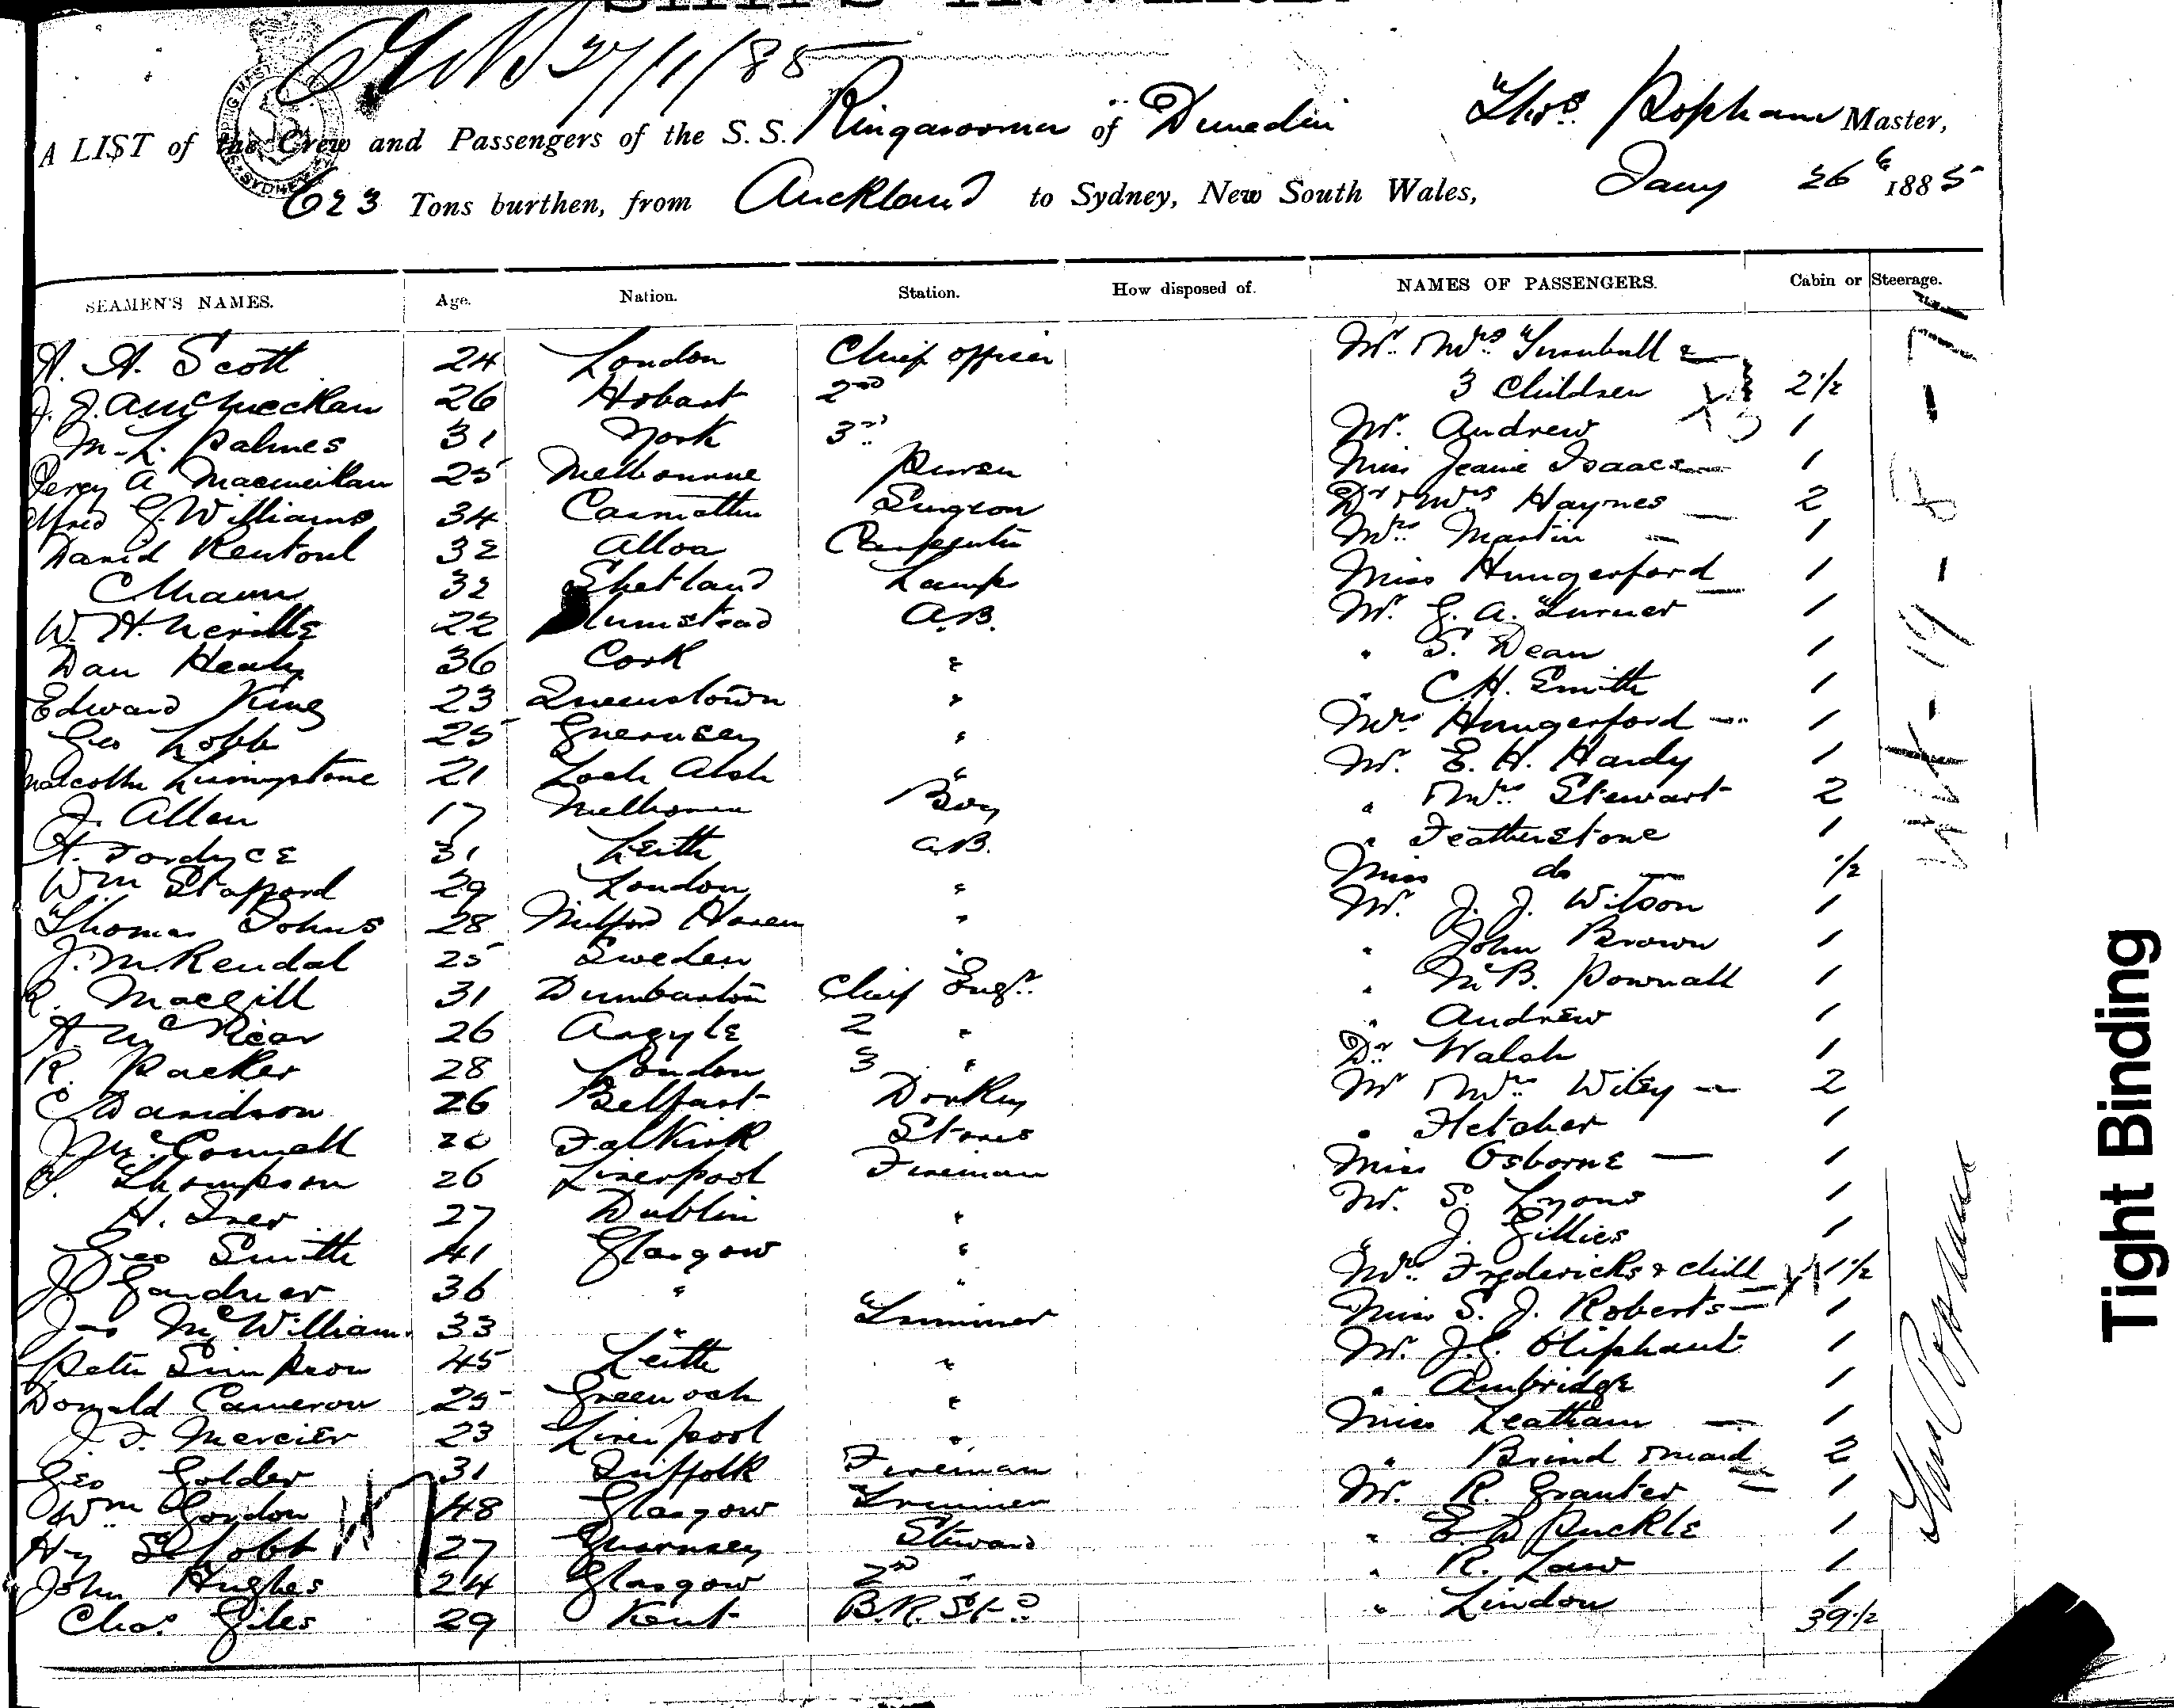 SHIPS INWARDS.
27/1/85
A LIST of the Crew and Passengers of the S.S. Ringarooma of Dunedin Thos. Popham Master,
623 Tons burthen, from Auckland to Sydney, New South Wales, Jany 26th 1885
SEAMEN'S NAMES. Age. Nation. Station. How disposed of. NAMES OF PASSENGERS. Cabin or Steerage.
A. A. Scott 24 London Chief officer Mr. & Mrs. Turnbull &
3 Children 2 1/2
26 Hobart 2nd
M. L. Palmes 31 York 3rd Mr. Andrew 1
Percy A Macmeikan 25 Melbourne Purser Miss Jeanie Isaacs 1
Alfred G. Williams 34 Carmarthen Surgeon Dr & Mrs Haynes 2
David Rentoul 32 Alloa Carpenter Mrs. Martin 1
C Mann 32 Shetland Lamps Miss Hungerford 1
W. H. Neville 22 Plumstead A.B. Mr. G. A. Turner 1
Dan Healy 36 Cork " " S. Dean 1
Edward King 23 Queenstown " " C. H. Smith 1
Geo Lobb 25 Guernsey " Mrs Hungerford 1
Malcolm Livingstone 21 Loch Alsh " Mr. E. H. Hardy 1
J. Allen 17 Melbourne Boy " & Mrs. Stewart 2
A. Fordyce 31 Leith A.B. " Featherstone 1
Wm Stafford 29 London " Miss do 1/2
Thomas Johns 28 Milford Haven " Mr. J. J. Wilson 1
J. M. Rendal 25 Sweden " " John Brown 1
R. Macgill 31 Dumbarton Chief Engr. " McB. Pownall 1
A. McNicar 26 Argyle 2 " " Andrew 1
R. Packer 28 London 3 " Dr. Walsh 1
C Davidson 26 Belfast Donkey Mr & Mrs. Wiley 2
J McConnell 26 Falkirk Stores " Fletcher 1
Thompson 26 Liverpool Fireman Miss Osborne 1
H. Iver 27 Dublin " Mr. S. Lyons 1
Geo Smith 41 Glasgow " " J. Gillies 1
J Gardner 36 " " Mrs. Fredericks & child 1 1/2
Jas McWilliam 33 " Trimmer Miss S. J. Roberts 1
Peter Simpson 45 Leith " Mr. J. G. Oliphant 1
Donald Cameron 25 Greenock " " Ambridge 1
J. F. Mercier 23 Liverpool " Miss Leatham 1
Geo Golder 31 Suffolk Fireman " Brind & maid 2
Wm Gordon 48 Glasgow Trimmer Mr. R. Granter 1
Hy S Lobb 27 Guernsey Steward " E. D Puckle 1
John Hughes 24 Glasgow 2nd " " R. Law 1
Chas. Giles 29 Kent B.R. Std " Lindon 1
39 1/2
Thos Popham
Tight Binding